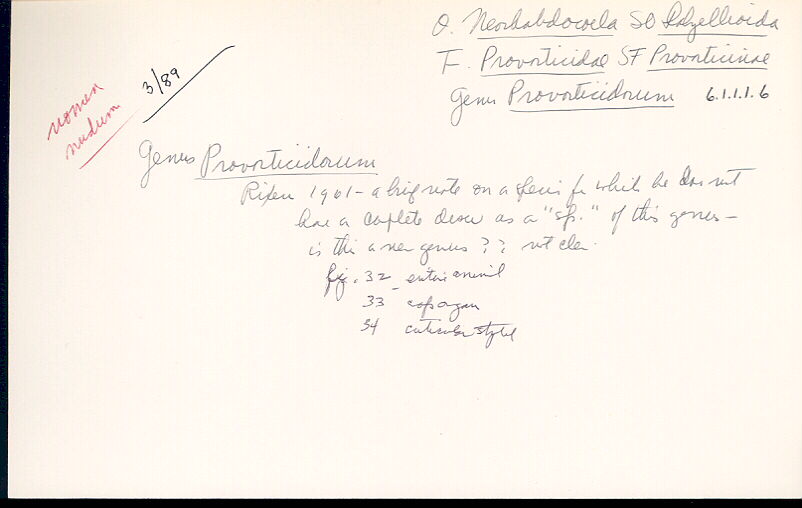 O. Neorhabdocoela SO Dalyellioida
F. Provorticidae SF Provorticinae
Genus Provorticidorum 6.1.1.1.6
nomen
nudum
3/89
Genus Provorticidorum
Rixen 1961 - a brief note on a species for which he does not
have a complete descr as a "sp." of this genus -
is this a new genus ? ? not clear.
fig. 32 entire animal
33 cop organ
34 cuticular stylet